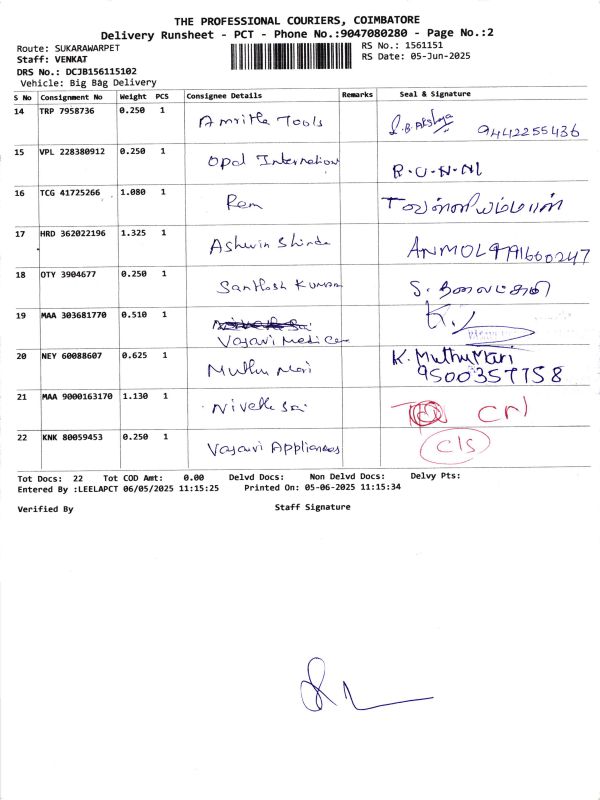 THE PROFESSIONAL COURIERS, COIMBATORE
Delivery Runsheet - PCT - Phone No.:9047080280 - Page No.:2
Route: SUKARAWARPET RS No.: 1561151
Staff: VENKAT RS Date: 05-Jun-2025
DRS No.: DCJB156115102
Vehicle: Big Bag Delivery
S No Consignment No Weight PCS Consignee Details Remarks Seal & Signature
14 TRP 7958736 0.250 1 Amritha Tools 9442255436
15 VPL 228380912 0.250 1 Opal Internation R.U.N.NI
16 TCG 41725266 1.080 1 Ram
17 HRD 362022196 1.325 1 Ashwin Shinde ANMOL 9791660247
18 OTY 3904677 0.250 1 Santhosh Kumar
19 MAA 303681770 0.510 1 Vasavi Medice
20 NEY 60088607 0.625 1 Muthu Mari K. MuthuMari
9500357758
21 MAA 9000163170 1.130 1 Nivetha Sri crl
22 KNK 80059453 0.250 1 Vasavi Appliances cls
Tot Docs: 22 Tot COD Amt: 0.00 Delvd Docs: Non Delvd Docs: Delvy Pts:
Entered By :LEELAPCT 06/05/2025 11:15:25 Printed On: 05-06-2025 11:15:34
Verified By Staff Signature